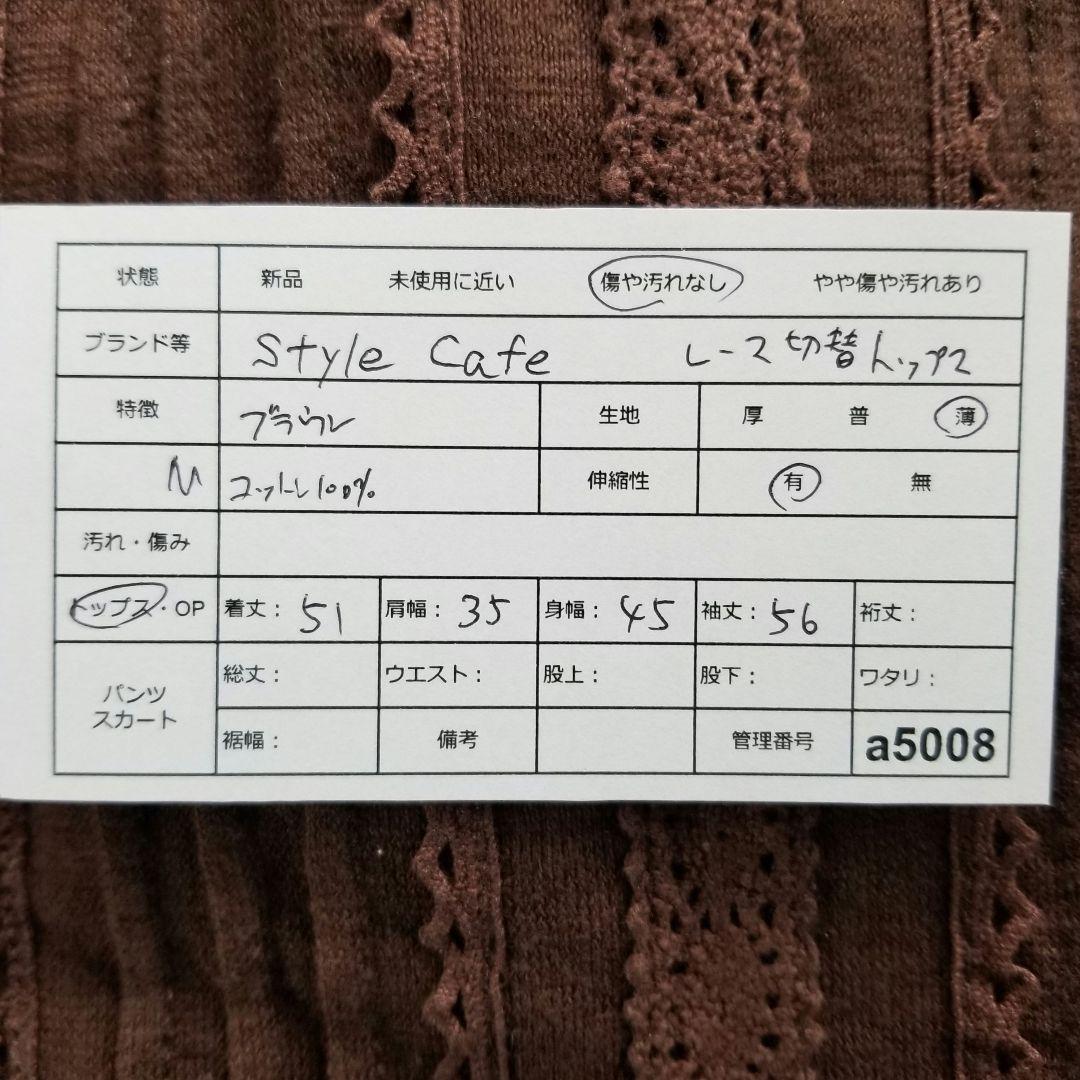 状態 新品 未使用に近い 傷や汚れなし やや傷や汚れあり
ブランド等 Style Cafe レース切替トップス
特徴 ブラウン 生地 厚 普 薄
M コットン100% 伸縮性 有 無
汚れ・傷み
トップス・OP 着丈: 51 肩幅: 35 身幅: 45 袖丈: 56 裄丈:
パンツ スカート 総丈: ウエスト: 股上: 股下: ワタリ:
裾幅: 備考 管理番号 a5008